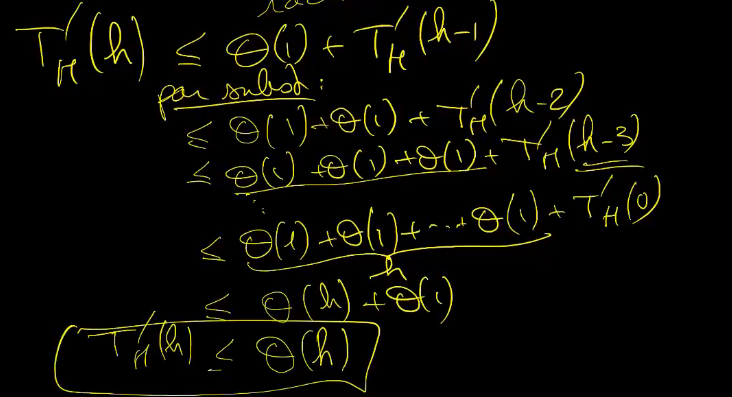 T'_H(h) ≤ Θ(1) + T'_H(h-1)
par subst :
≤ Θ(1) + Θ(1) + T'_H(h-2)
≤ Θ(1) + Θ(1) + Θ(1) + T'_H(h-3)
⋮
≤ Θ(1) + Θ(1) + ... + Θ(1) + T'_H(0)
h
≤ Θ(h) + Θ(1)
T'_H(h) ≤ Θ(h)